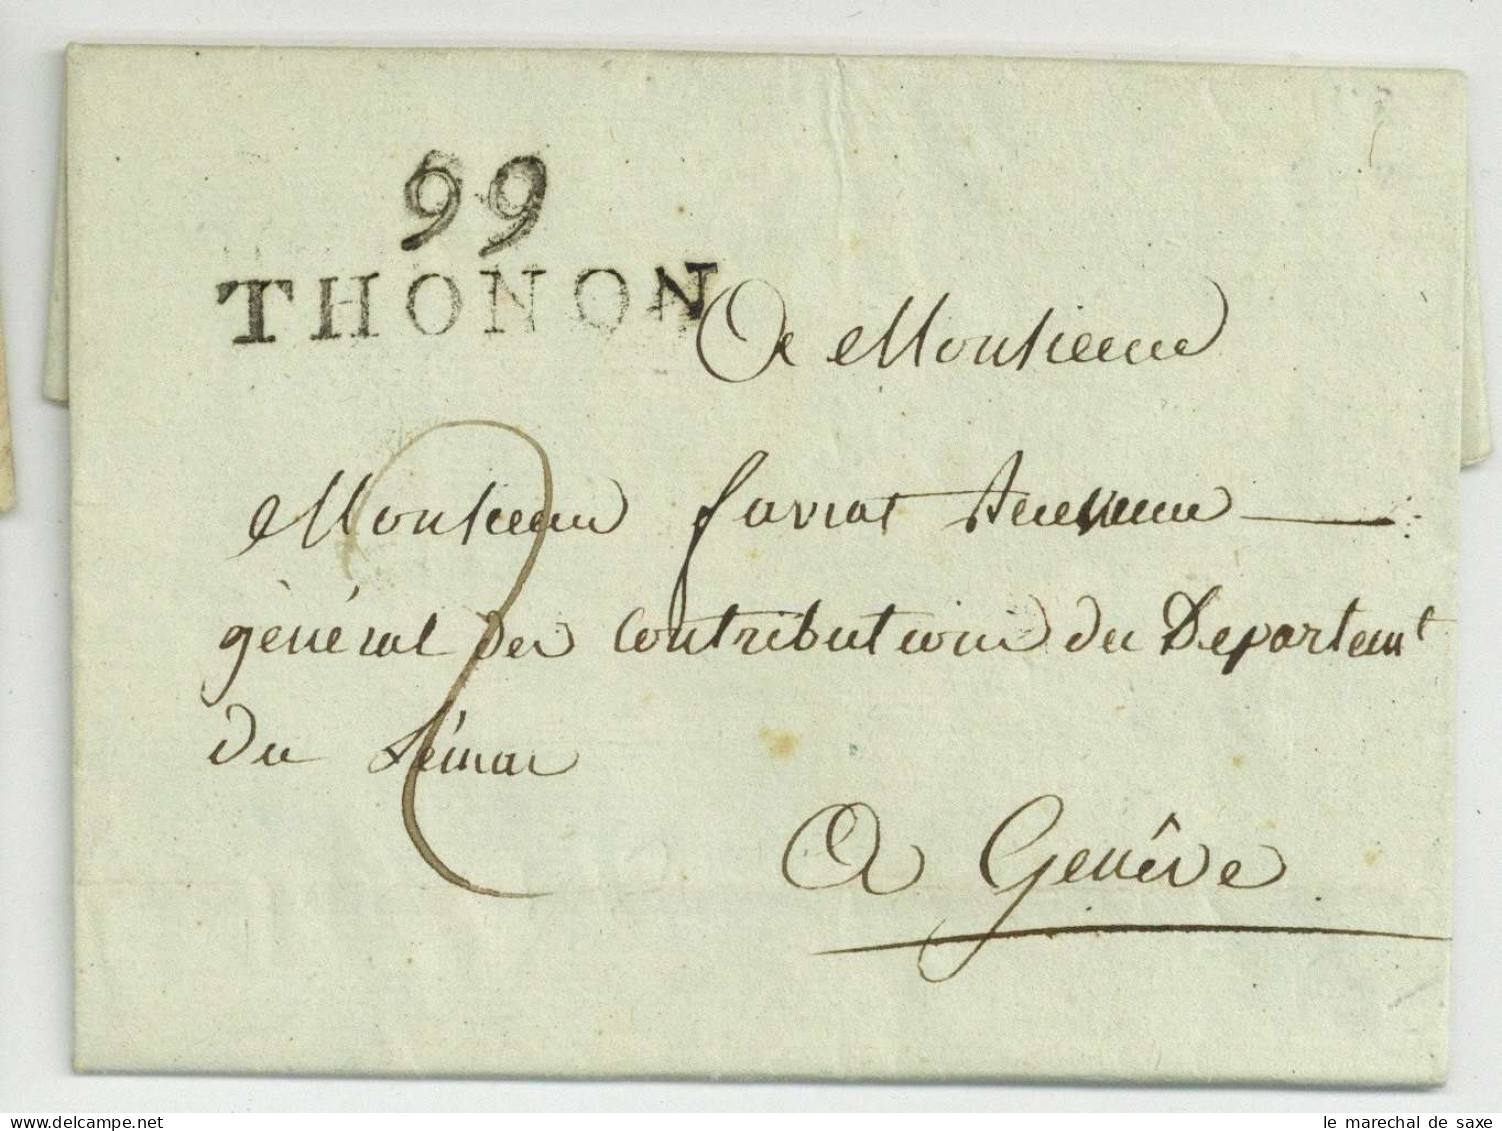 99
THONON
A Monsieur
Monsieur favrat Receveur
général des Contributions du Departemt
du Léman
A Genêve
2
le marechal de saxe